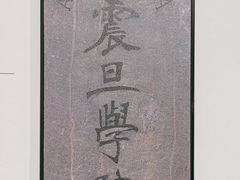 震旦學